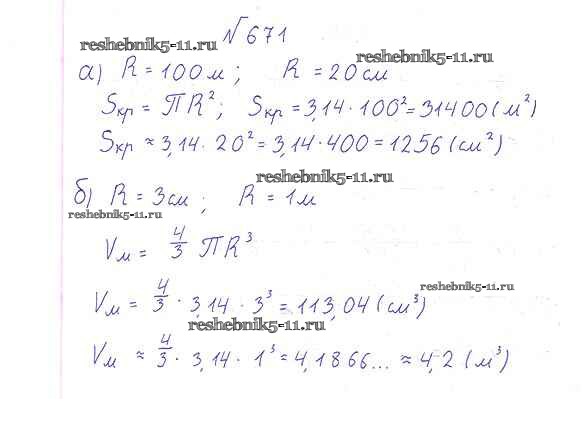 № 671
reshebnik5-11.ru
reshebnik5-11.ru
а) R = 100 м ; R = 20 см
Sкр = ПR²; Sкр = 3,14 · 100² = 31400 (м²)
Sкр ≈ 3,14 · 20² = 3,14 · 400 = 1256 (см²)
reshebnik5-11.ru
б) R = 3 см ; R = 1 м
reshebnik5-11.ru
Vм = 4/3 ПR³
reshebnik5-11.ru
Vм = 4/3 · 3,14 · 3³ = 113,04 (см³)
reshebnik5-11.ru
Vм ≈ 4/3 · 3,14 · 1³ = 4,1866... ≈ 4,2 (м³)